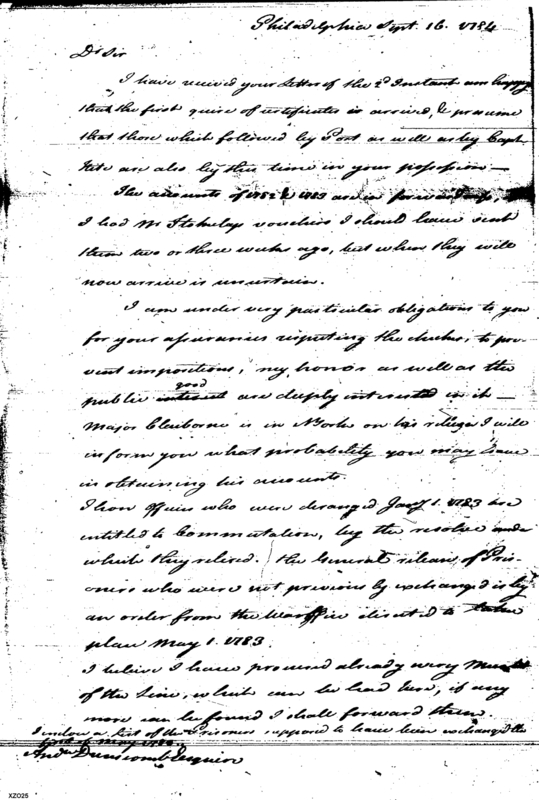 Philadelphia Sept. 16. 1784
Dr Sir
I have received your Letter of the 2d Instant am happy
that the first quire of certificates is arrived, & presume
that those which followed by Post as well as by Capt
are also by this time in your possession —
The accounts of 1782 & 1783 are in forwardness,
I had Mr Stokelys vouchers I should have sent
them two or three weeks ago, but when they will
now arrive is uncertain.
I am under very particular obligations to you
for your assurances respecting the checks, to pre-
vent impositions, my honor as well as the
good
public interest are deeply interested in it —
Major Claiborne is in N York on his return I will
inform you what probability you may have
in obtaining his accounts.
Those officers who were deranged Jany 1. 1783 are
entitled to Commutation, by the resolve under
which they retired. The General release of Pris-
oners who were not previously exchanged is by
an order from the War office directed to take
place May 1. 1783.
I believe I have procured already every Muster
of the Line, which can be had here, if any
more can be found I shall forward them.
I inclose a List of the Prisoners supposed to have been exchanged the
first of May 1783.
Andw Dunscomb Esquire
XZO25